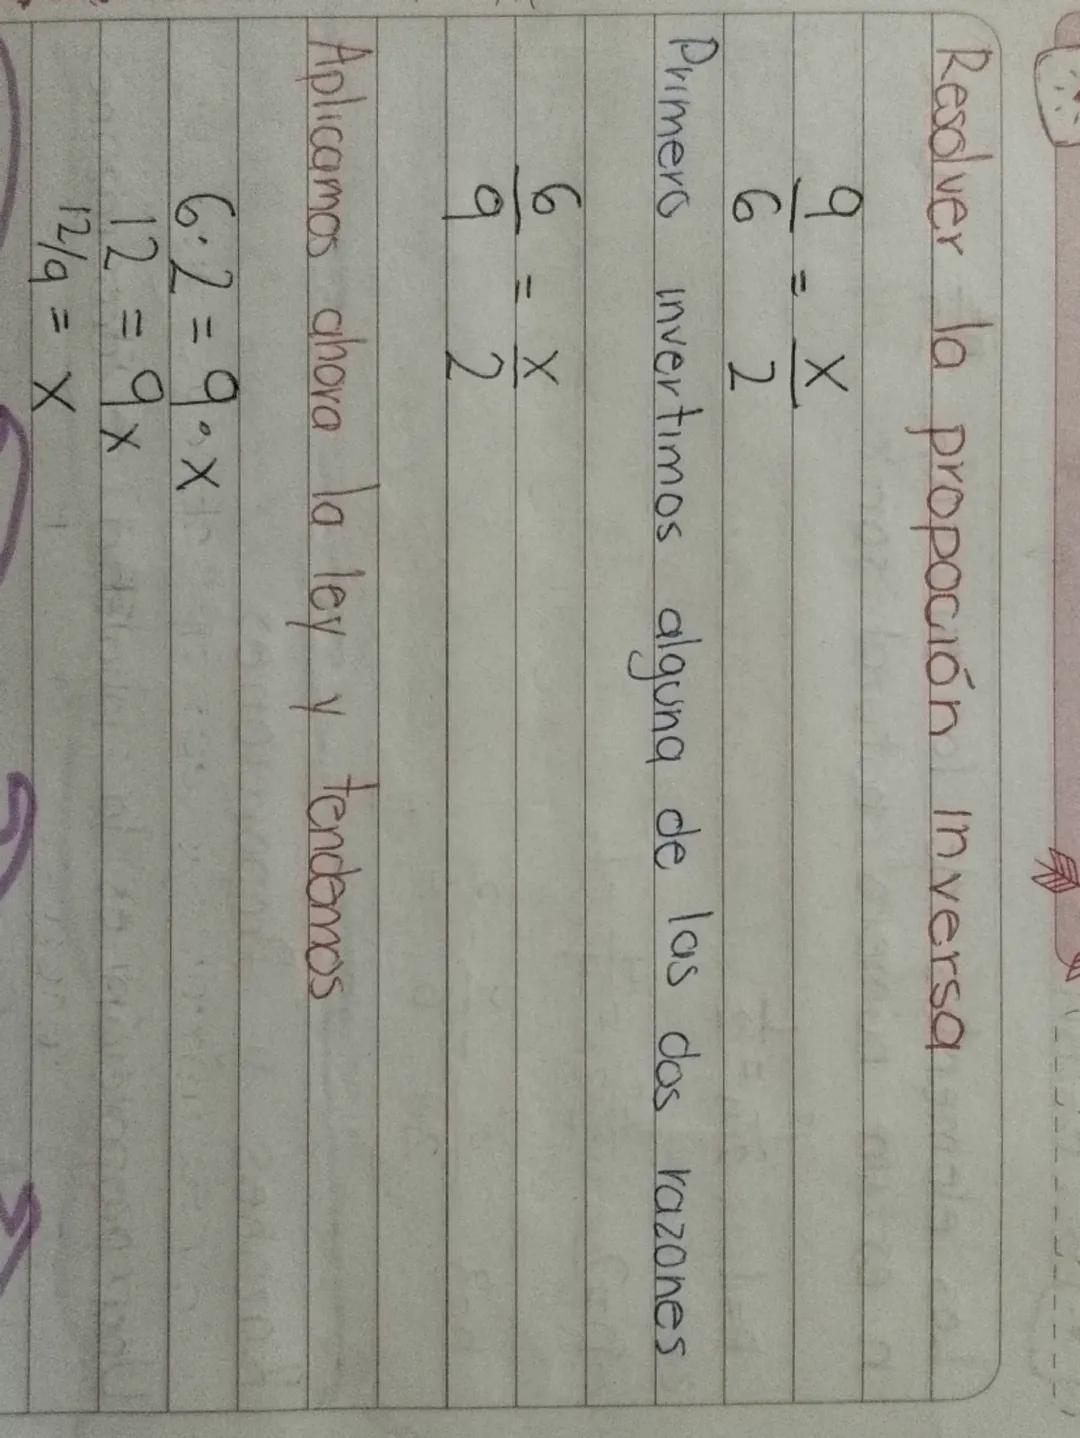 Resolver la propoción inversa
9/6 = x/2
Primero invertimos alguna de las dos razones
6/9 = x/2
Aplicamos ahora la ley y tendemos
6·2 = 9·x
12 = 9x
12/9 = x